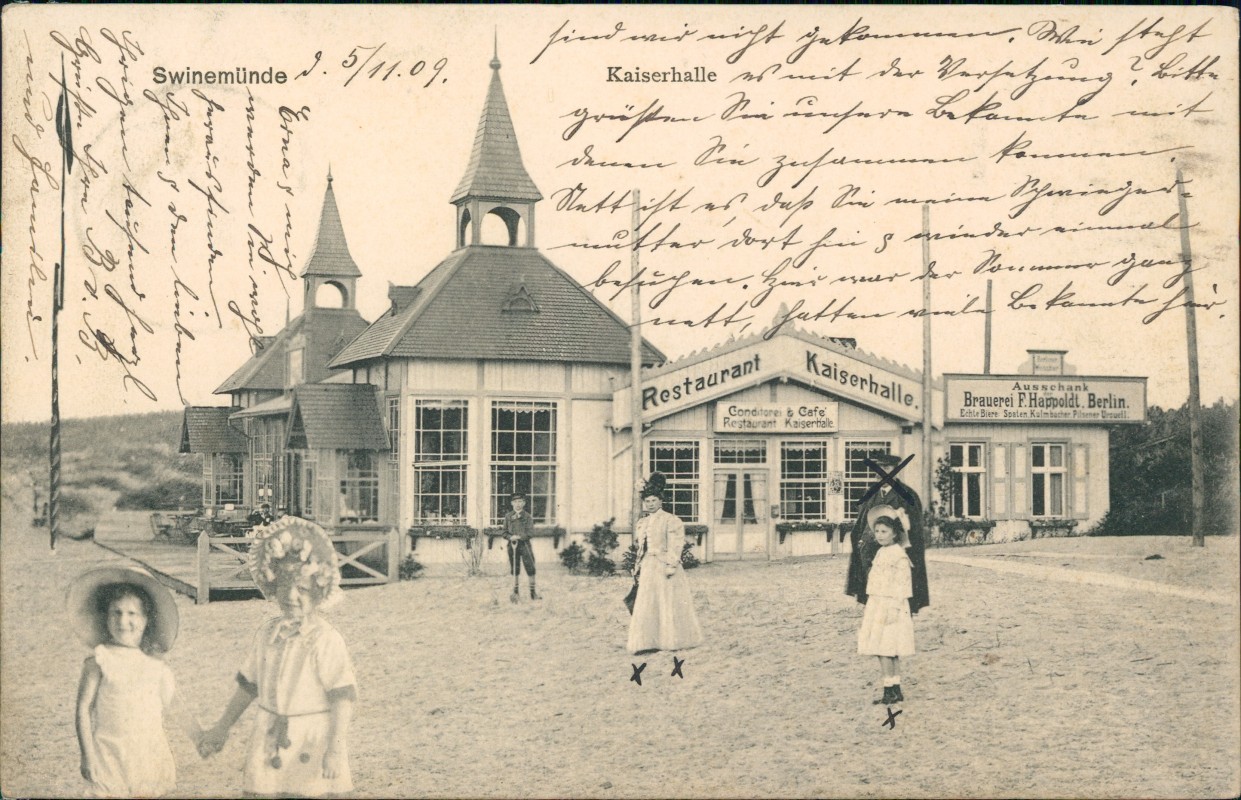 Swinemünde
d. 5/11.09.
Kaiserhalle
sind wir nicht gekommen. Wie steht
es mit der Versetzung? Bitte
grüßen Sie unsere Bekannte mit
denen Sie zusammen kommen.
Nett ist es, daß Sie meine Schwieger-
mutter dort hin & wieder einmal
besuchen. Hier war der Sommer ganz
nett, hatten viele Bekannte hier.
Erna & mich
werden Sie wohl
herausfinden
Ihnen & dem lieben
Jungen tausend herzl
Grüße Ihre B v.
und
Restaurant Kaiserhalle.
Conditorei & Café
Restaurant Kaiserhalle.
Ausschank
Brauerei F. Happoldt. Berlin.
Echte Biere: Spaten, Kulmbacher Pilsener Urquell.